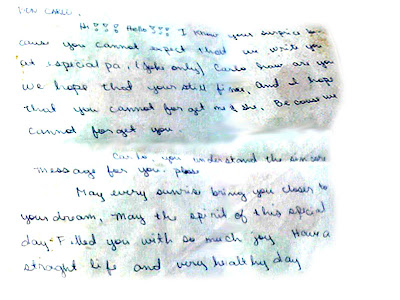 FOR CARLO,
Hi!!! Hello!!! I know your surprise
cause you cannot expect that we write you
at especial pa. (Joke only) Carlo how are you
we hope that your still fine, and I hope
that you cannot forget me & she. Because we
cannot forget you
Carlo, you understand the sincere
message for you. please
May every sunrise bring you closer to
your dream, May the spirit of this special
day. Filled you with so much joy Have a
straght life and very healthy day